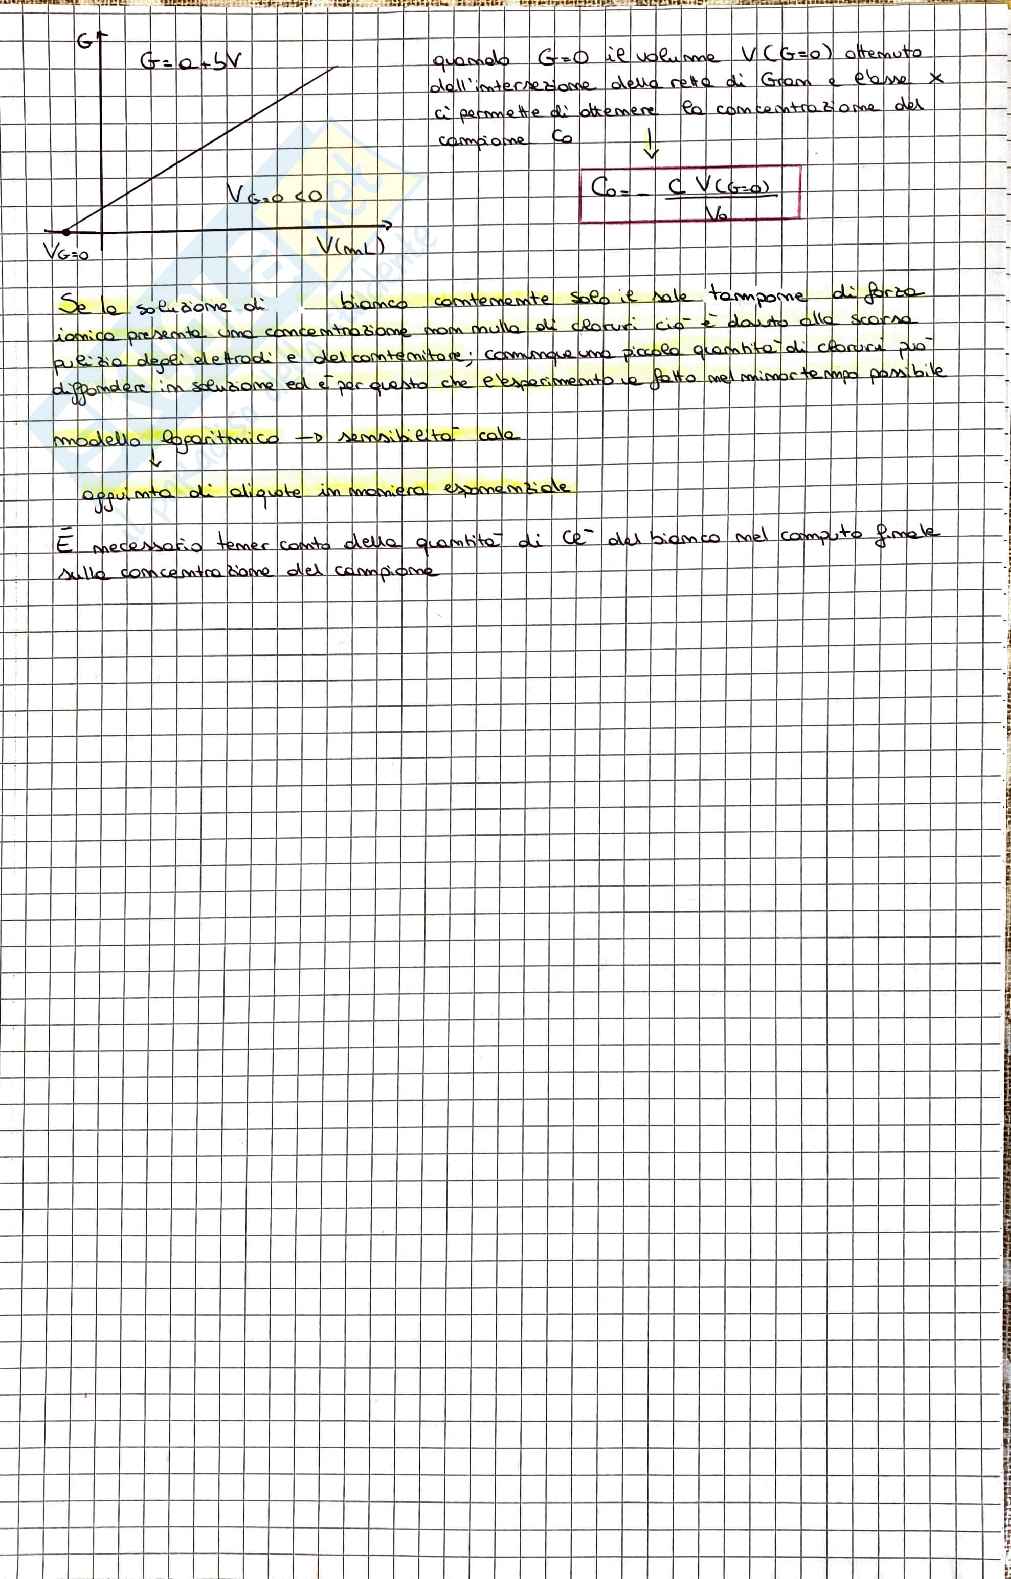 G
G=a+bV
V G=0 <0
V(mL)
VG=0
quando G=0 il volume V(G=0) ottenuto
dall'intersezione della retta di Gran e l'asse x
ci permette di ottenere la concentrazione del
campione C0
↓
C0=- C V(G=0)
V0
Se la soluzione di bianco contenente solo il sale tampone di forza
ionica presenta una concentrazione non nulla di cloruri ciò è dovuto alla scarsa
pulizia degli elettrodi e del contenitore; comunque una piccola quantità di cloruri può
diffondere in soluzione ed è per questo che l'esperimento va fatto nel minor tempo possibile
modello logaritmico → sensibilità cala
↓
aggiunta di aliquote in maniera esponenziale
È necessario tener conto della quantità di Cl- del bianco nel computo finale
sulla concentrazione del campione